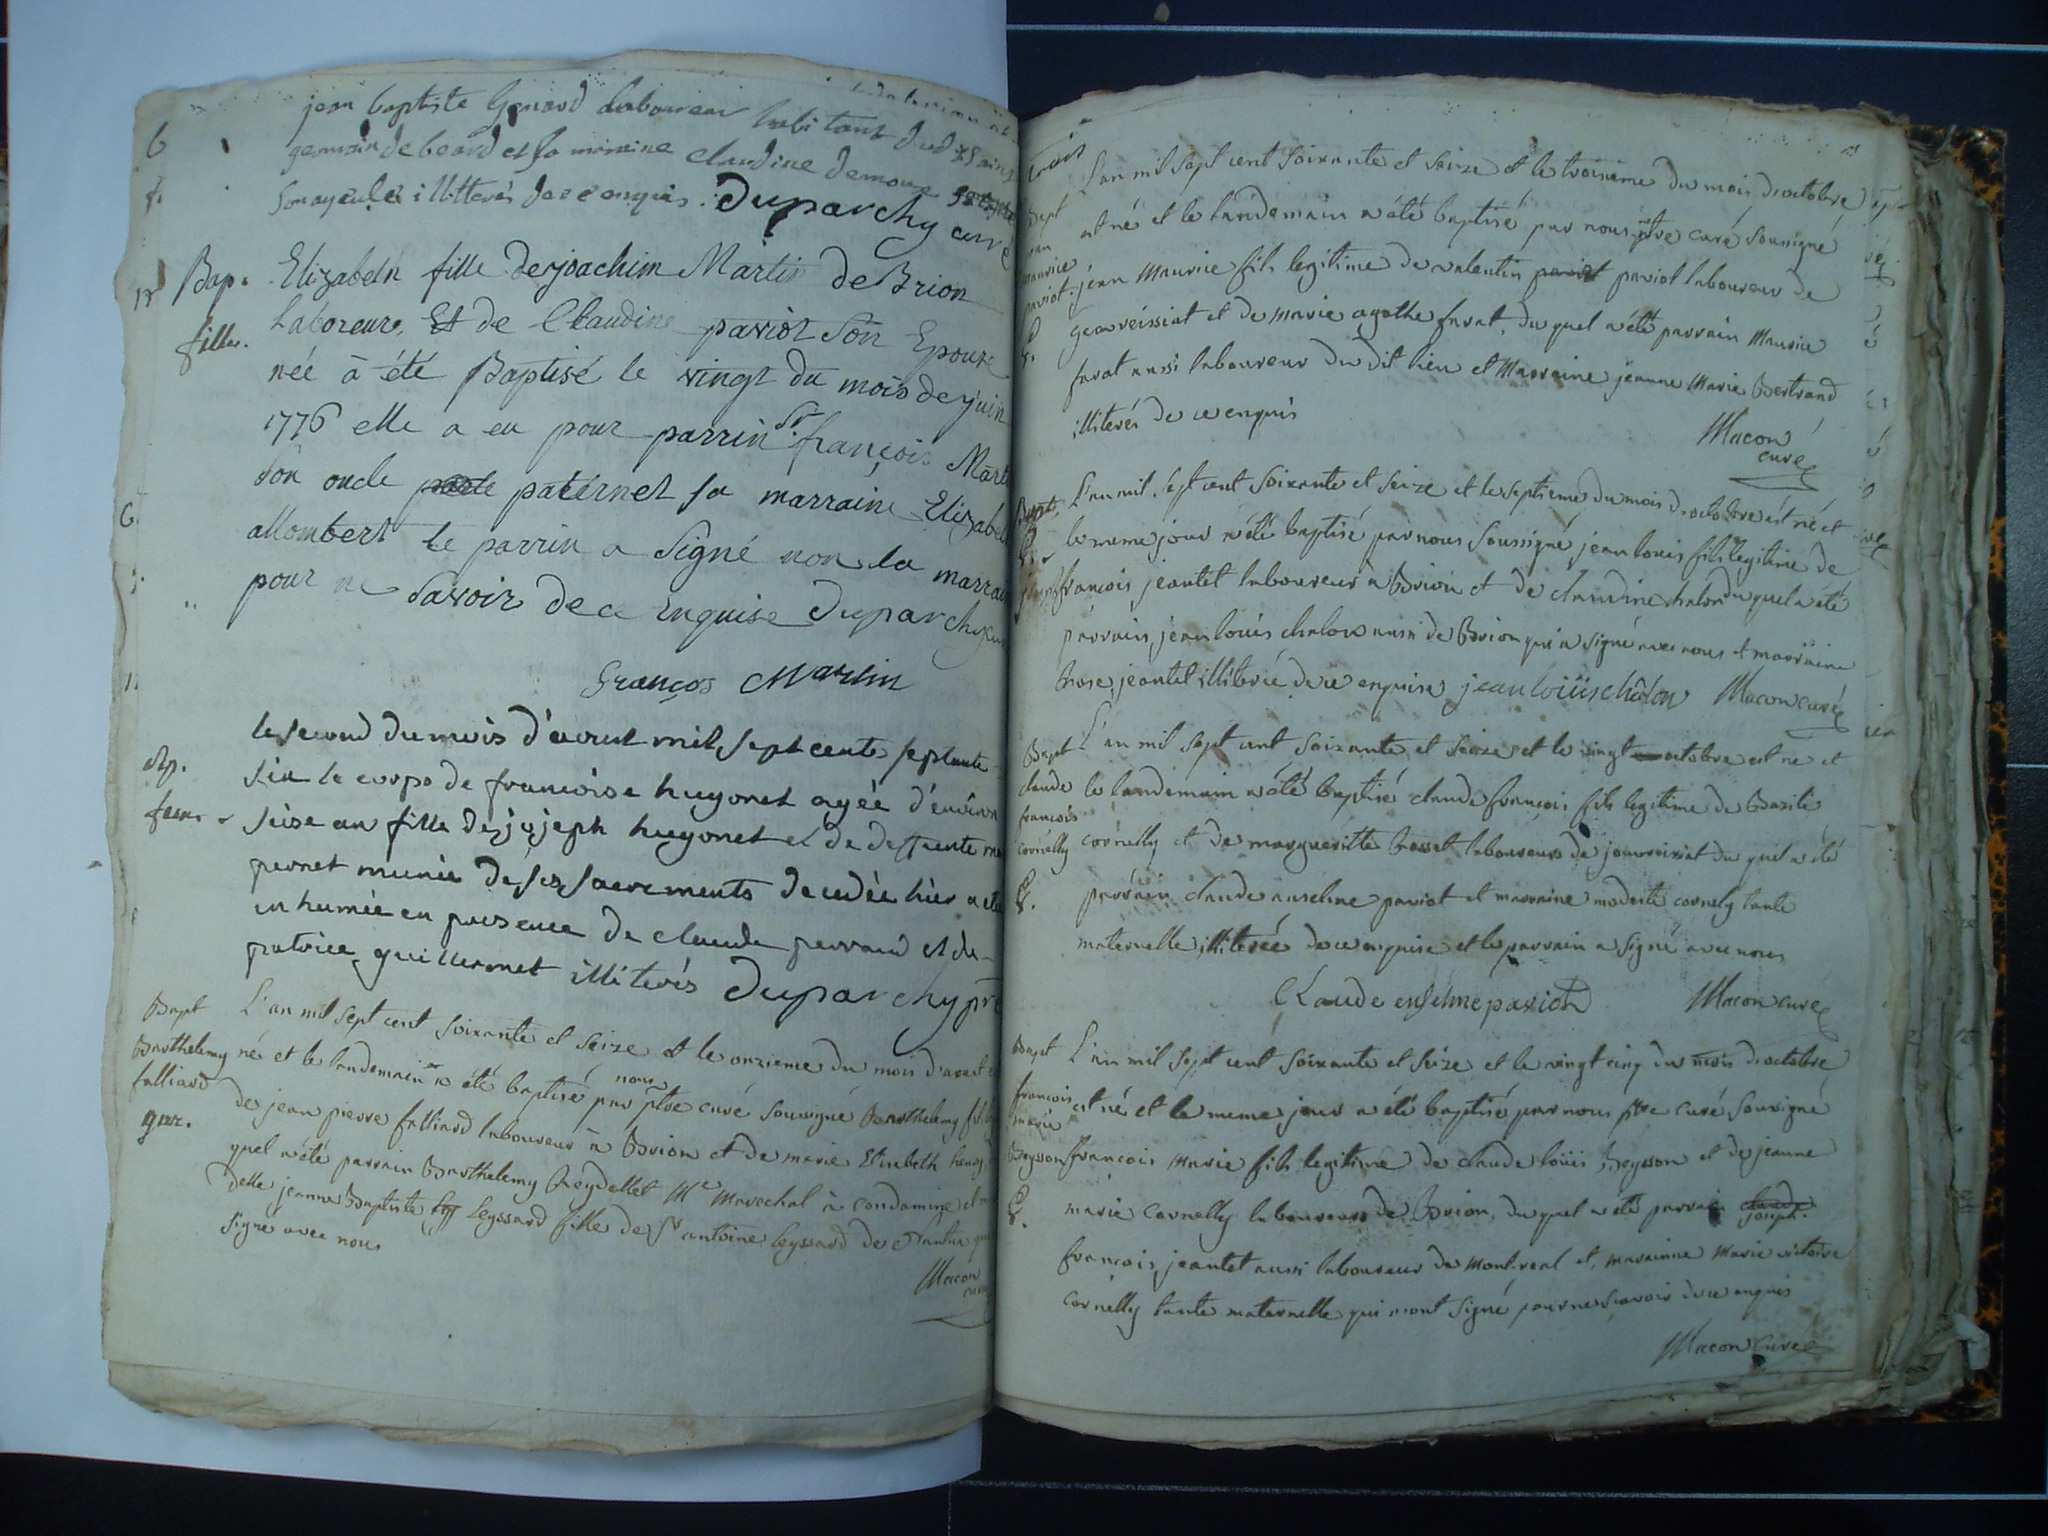 jean baptiste Genard laboureur habitant dud St
germain de beard et sa marraine claudine demoure
son ayeule illitterés de ce enquis. Duparchy curé
Bap.
fille.
Elizabeth fille de joachim Martin de Brion
Laboreure, Et de Claudine paviot son Epouze
née à été Baptisé le vingt du mois de juin
1776 elle a eu pour parrin sr. françois Mart
son oncle paternel sa marraine Elizabet
allombert le parrin a signé non la marrain
pour ne savoir de ce enquise Duparchy cur
françois Martin
Sep.
fem.
le second du mois d'aoust mil sept cents septante
six le corps de françoise hugonet agée d'environ
seize an fille de joseph hugonet et de deffeunte
pernet munie de ses sacrements decedée hier a été
inhumée en presence de claude perraud et de
patrice guillermet illiterés Duparchy ptre
Bapt
Barthelemy
falliard
gar.
L'an mil sept cent soixante et seize et le onzieme du mois d'aoust est
né et le landemain a été baptisé par nous ptre curé soussigné Barthelemy fils
de jean pierre falliard laboureur à Brion et de marie Elisabeth
quel a été parrain Barthelemy Reydellet Me marechal à condamine et
delle jeanne Baptiste Leyssard fille de sr antoine leyssard de
signé avec nous
Macon
curé
Bapt
jean
maurice
paviot.
L'an mil sept cent soixante et seize et le troisieme du mois d'octobre
est né et le landemain a été baptisé par nous ptre curé soussigné
jean Maurice fils legitime de valentin paviot laboureur de
geovreissiat et de marie agathe favat, du quel a été parrain Maurice
favat aussi laboureur du dit lieu et Marraine jeanne Marie Bertrand
illiterés de ce enquis
Macon
curé
Bapt.
L'an mil sept cent soixante et seize et le septieme du mois d'octobre est né et
le meme jour a été baptisé par nous soussigné jean louis fils legitime de
françois jeantet laboureur a Brion et de claudine chalon du quel a été
parrain jean louis chalon aussi de Brion qui a signé avec nous et marraine
Rose jeantet illiterée de ce enquise jean loüis châlon Macon curé
Bapt
claude
françois
cornelly
L'an mil sept cent soixante et seize et le vingt octobre est né et
le landemain a été baptisé claude françois fils legitime de Basile
cornelly et de margueritte Brosset laboureurs de du quel a été
parrain claude anselme paviot et marraine modeste cornely tante
maternelle illiterée de ce enquise et le parrain a signé avec nous
Claude enselme paviot Macon curé
Bapt
françois
marie
Beysson
L'an mil sept cent soixante et seize et le vingt cinq du mois d'octobre
est né et le meme jour a été baptisé par nous ptre curé soussigné
françois marie fils legitime de claude loüis Beysson et de jeanne
marie Cornelly laboureurs de Brion, du quel a été parrain joseph
françois jeantet aussi laboureur de Montreal et marainne marie victoire
cornelly tante maternelle qui n'ont signé pour ne sçavoir de ce enquis
Macon curé